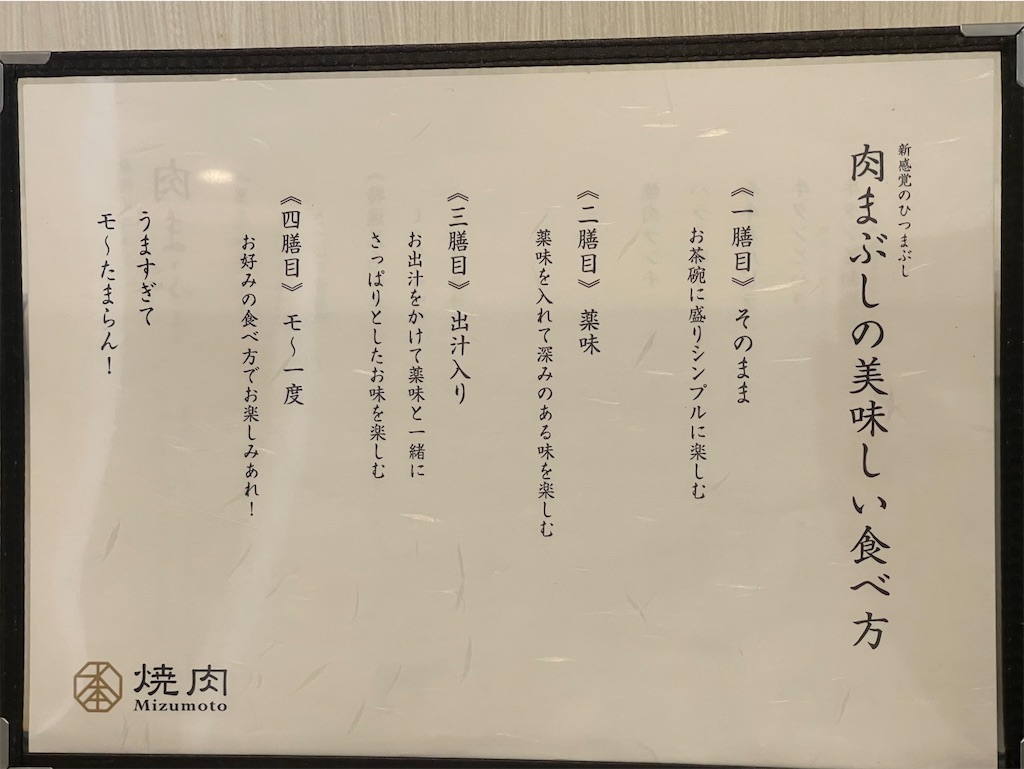 新感覚のひつまぶし
肉まぶしの美味しい食べ方
《一膳目》そのまま
お茶碗に盛りシンプルに楽しむ
《二膳目》薬味
薬味を入れて深みのある味を楽しむ
《三膳目》出汁入り
お出汁をかけて薬味と一緒に
さっぱりとしたお味を楽しむ
《四膳目》モ〜一度
お好みの食べ方でお楽しみあれ！
うますぎて
モ〜たまらん！
焼肉
Mizumoto